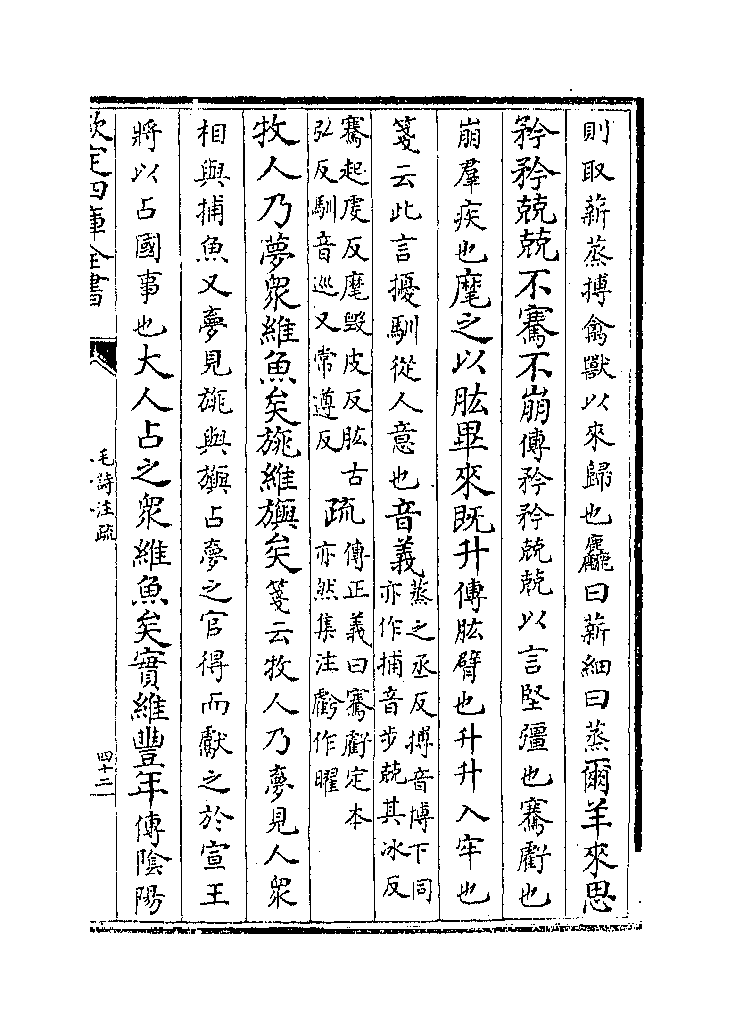 則取薪蒸搏禽獸以來歸也麤曰薪細曰蒸爾羊來思
矜矜兢兢不騫不崩傳矜矜兢兢以言堅彊也騫虧也
崩羣疾也麾之以肱畢來既升傳肱臂也升升入牢也
箋云此言擾馴從人意也音義蒸之丞反搏音博下同
亦作捕音步兢其冰反
騫起虔反麾毁皮反肱古
弘反馴音巡又常遵反
疏傳正義曰騫虧定本
亦然集注虧作曜
牧人乃夢衆維魚矣旐維旟矣箋云牧人乃夢見人衆
相與捕魚又夢見旐與旟占夢之官得而獻之於宣王
將以占國事也大人占之衆維魚矣實維豐年傳陰陽
欽定四庫全書
毛詩注疏
四十二